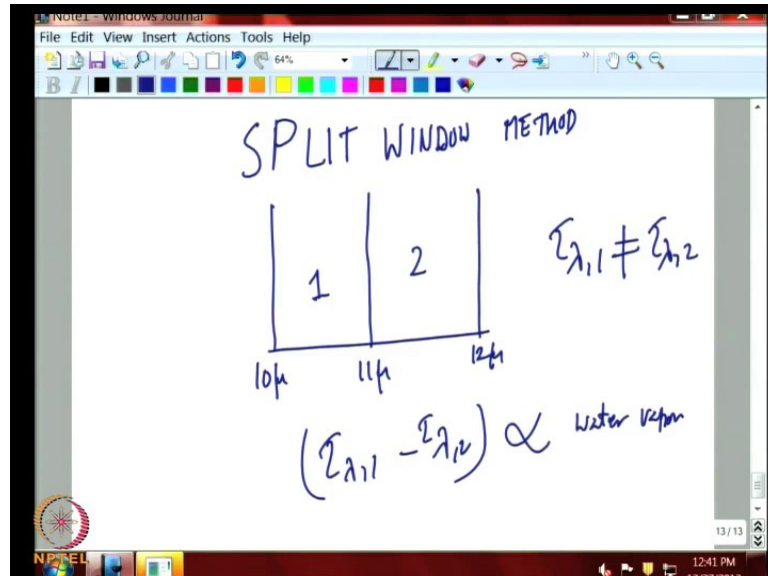 Note1 - Windows Journal
File Edit View Insert Actions Tools Help
64%
B I
SPLIT WINDOW METHOD
1 2
τλ,1 ≠ τλ,2
10μ 11μ 12μ
(τλ,1 - τλ,2) ∝ water vapor
13/13
NPTEL
12:41 PM